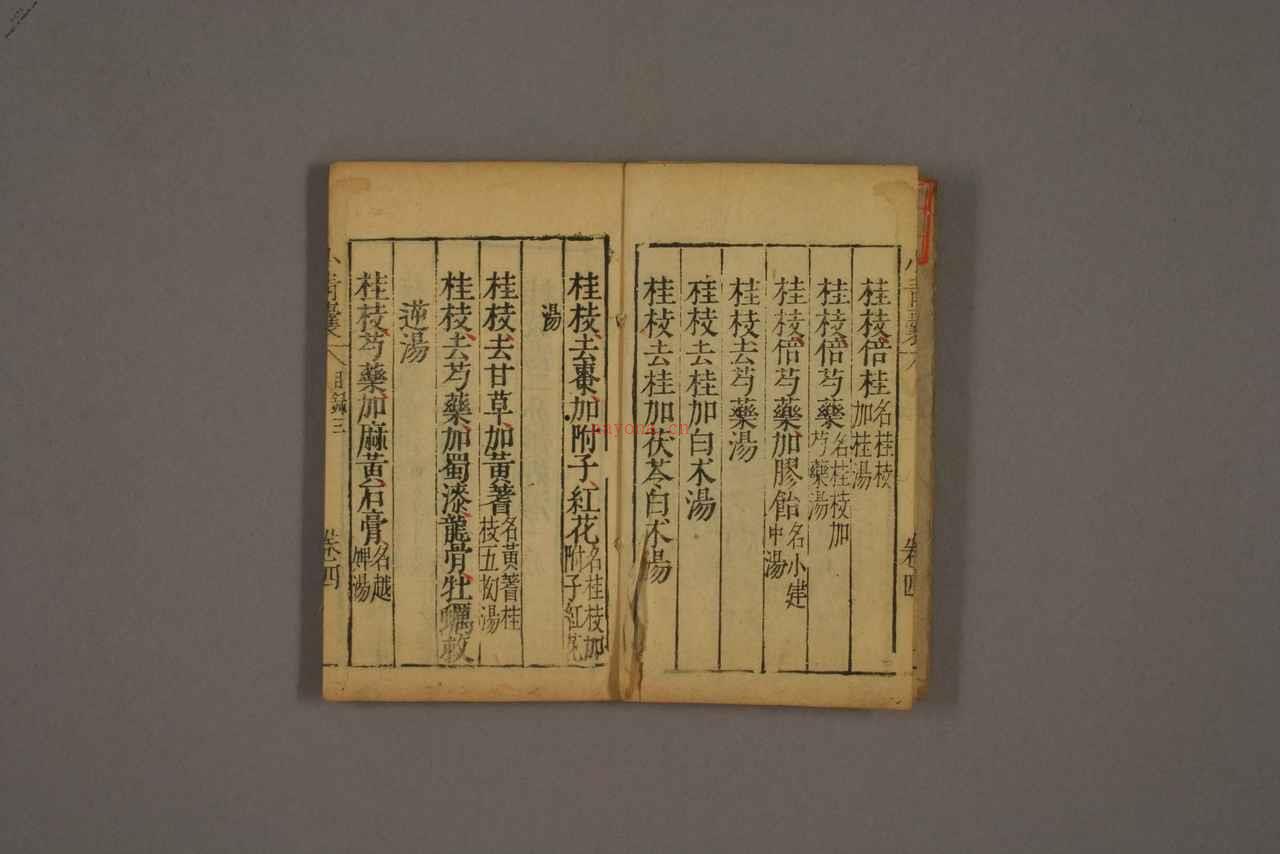 桂枝倍桂名桂枝加桂湯
桂枝倍芍藥名桂枝加芍藥湯
桂枝倍芍藥加膠飴名小建中湯
桂枝去芍藥湯
桂枝去桂加白术湯
桂枝去桂加茯苓白术湯
桂枝去棗加附子紅花名桂枝加附子紅花
湯
桂枝去甘草加黃蓍名黃蓍桂枝五物湯
桂枝去芍藥加蜀漆龍骨牡蠣救
逆湯
桂枝芍藥加麻黃石膏名越婢湯
小青囊
目錄三
卷四
小青囊
卷四
nayona.cn